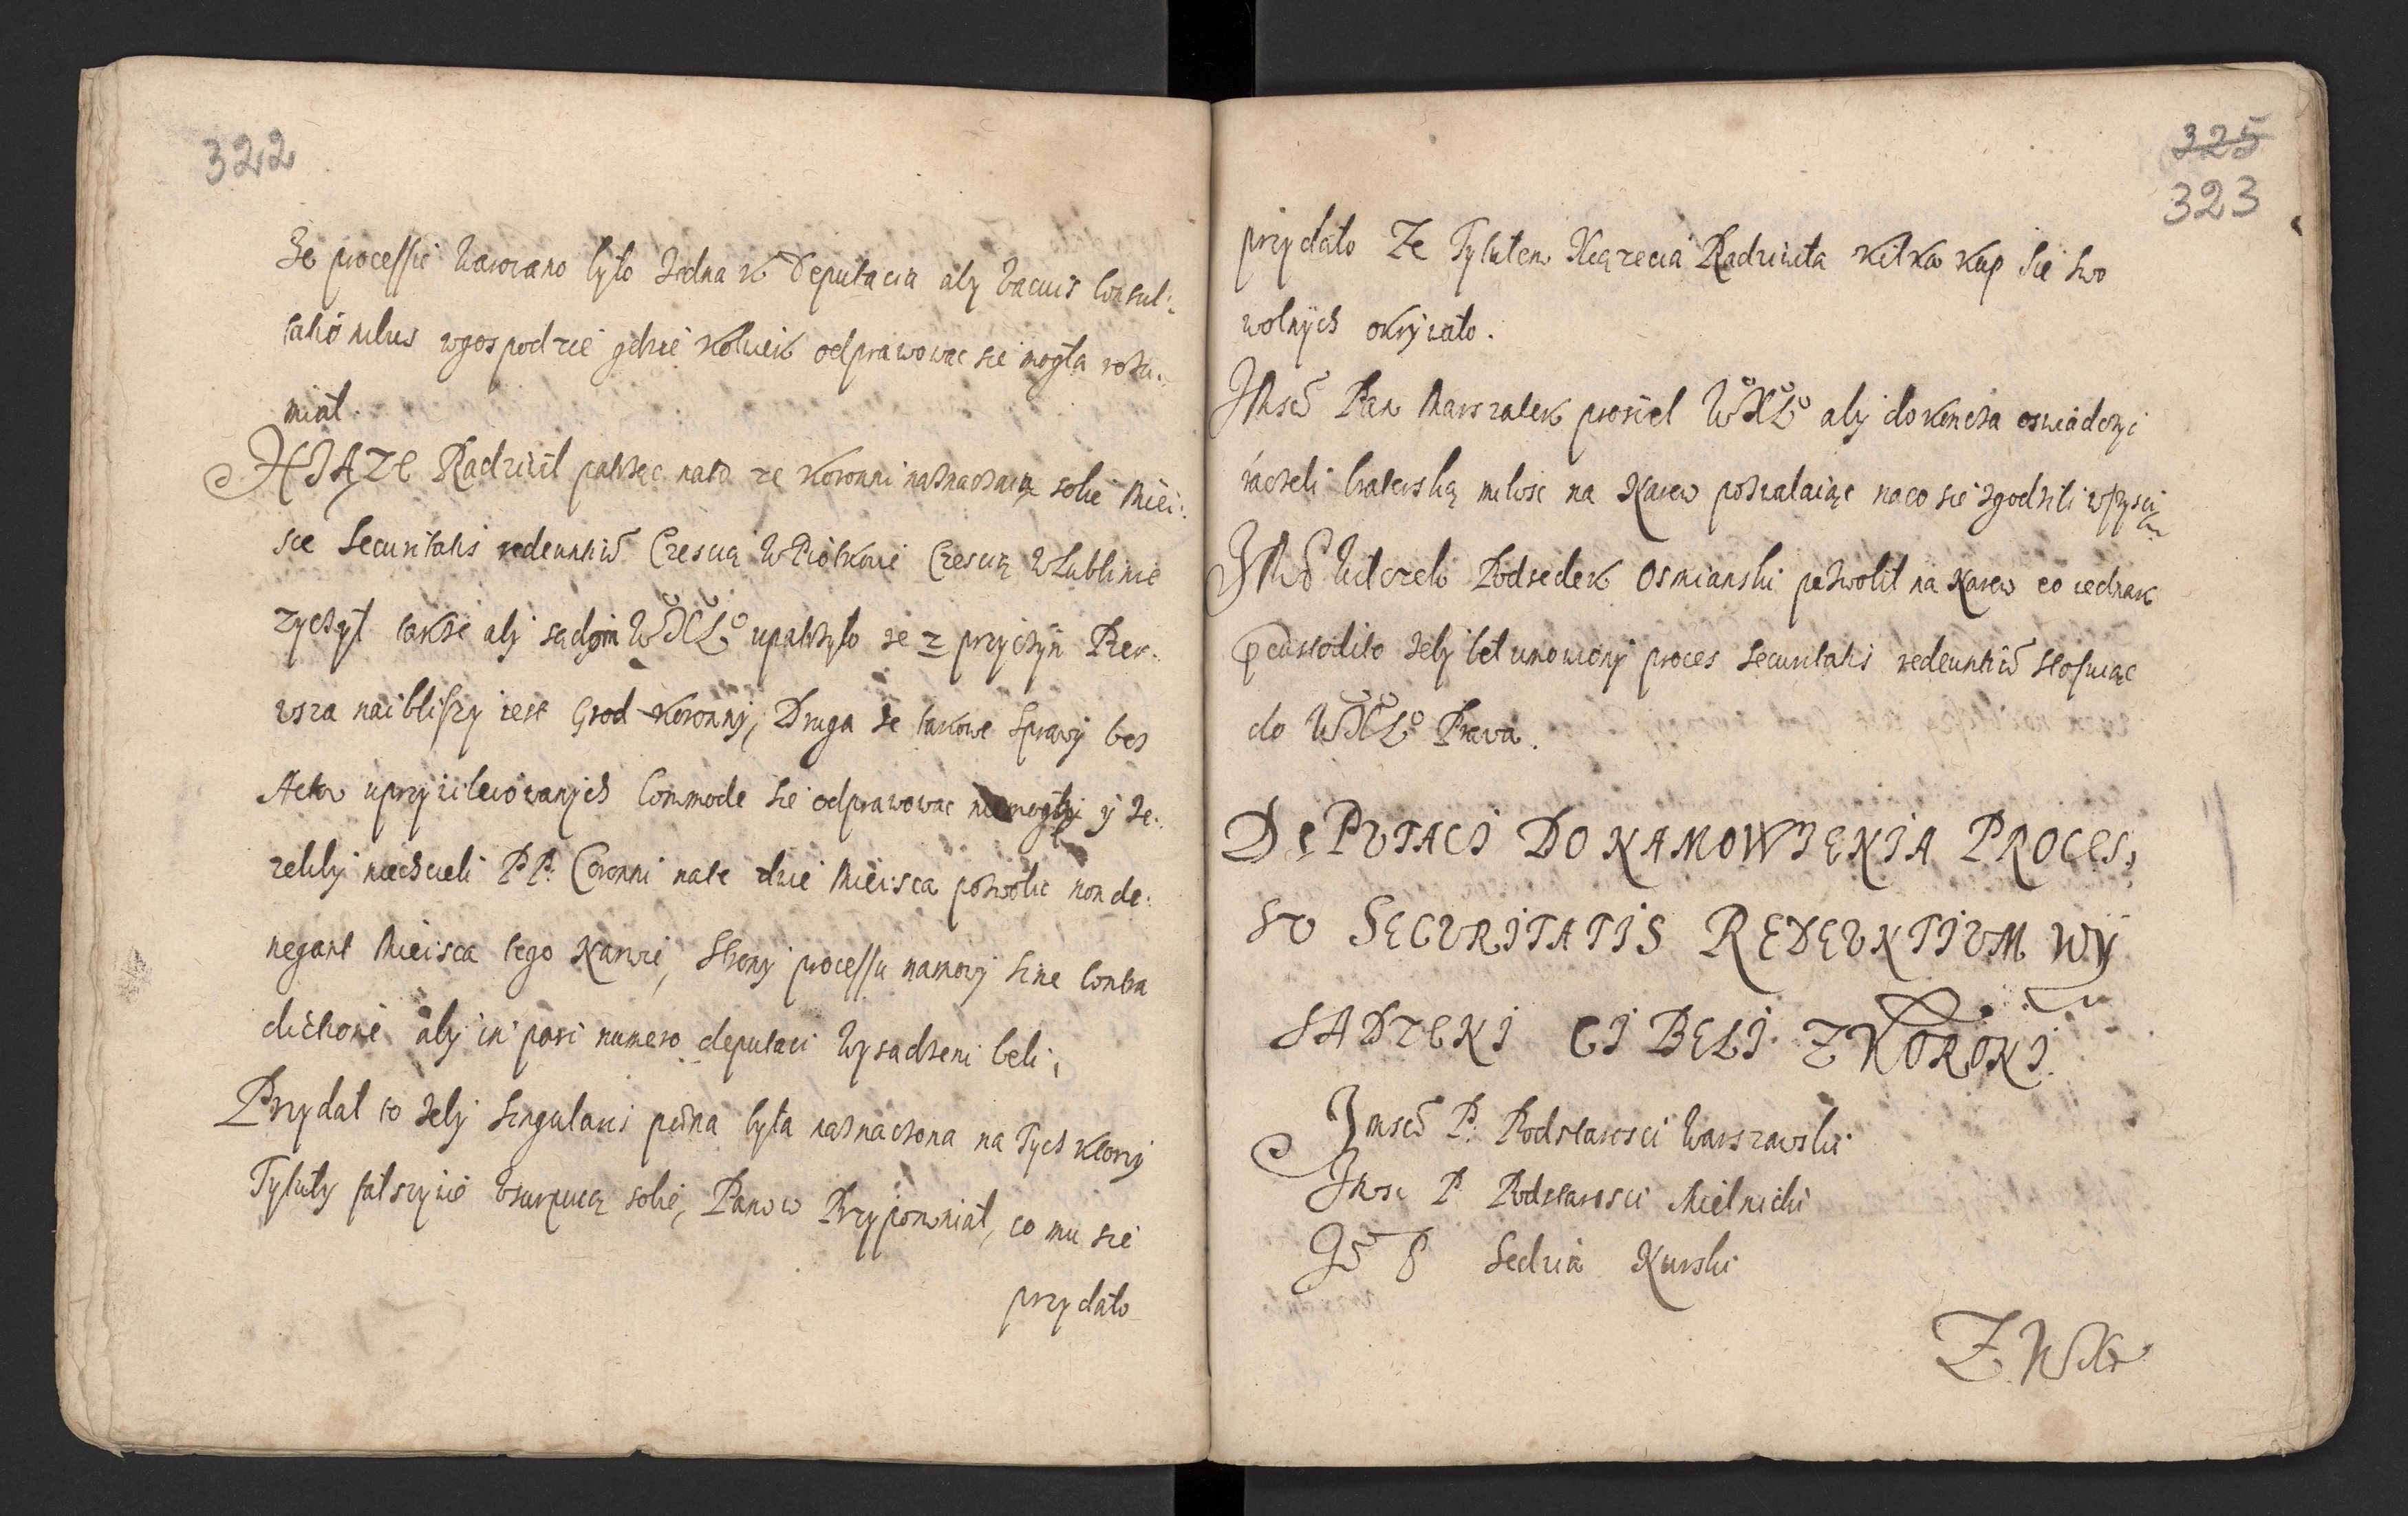 322
Ze processie warowano było Jednak Deputacia aby vacuis consul:
tationibus wgospodzie gdzie kolwiek odprawowac sie mogła rozu:
miał.
XIĄZE Radziwił patrząc nato ze Koronni naznaczaią sobie Miei:
sce Securitatis redeuntiũ Czescią WPiotkowie Czescią WLublinie
zyczył takze aby sądom WXL° upatrzyło ze z przyczyn Pier:
wsza naibliszy iest Grod Koronny, Druga ze takowe sprawy bez
Actow uprzywileiowanych Commode sie odprawowac niemogły y Je:
zeliby niechcieli PP: Coronni nate dwie Mieisca pozwolic non de:
negant Mieisca tego Narwie, Strony processu namowy sine contra
dictione aby in pari numero deputaci Wysadzeni beli,
Przydał to zeby singularis pœna była naznaczona na Tych ktorzy
Tytuły fałszywie Vsurpuią sobie, Panow Przypomniał, co mu sie
przydało
325
323
przydało Ze Tytułem Xiązecia Radziwiła kilka kup sie swo
wolnych okrywało.
JMsć Pan Marszałek prosieł WXL° aby dokoncza oswiadczyc
raczeli braterską miłosc na Narew pozwalaiąc naco sie zgodzili wszysci
JMć Podsedek Osmianski pozwolił na Narew co iednak
zeby beł umowiony proces securitatis redeuntiũ stosuiąc
do WXL° Prawa.
DEPUTACI DO NAMOWIENIA PROCES,
SU SECURITATIS REDEUNTIUM WY
SADZENI CI BELI Z KORONI.
Jmsć P. Podstarosci Warszawski
Jmsc P Podstarosci Mielnicki
Jć P Sedzia Nurski
Z WX